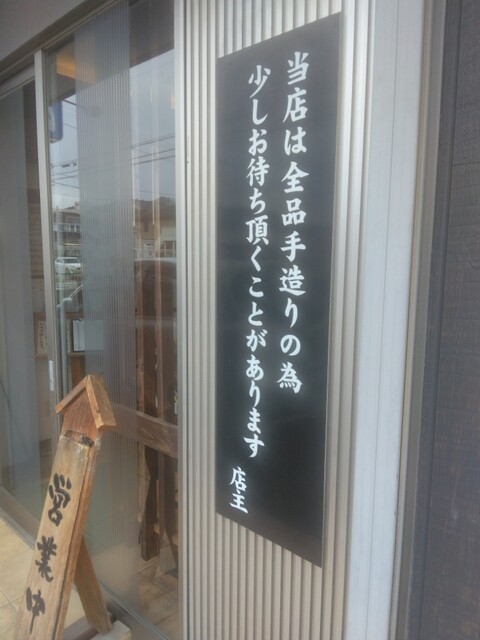 当店は全品手造りの為
少しお待ち頂くことがあります
店主
営業中